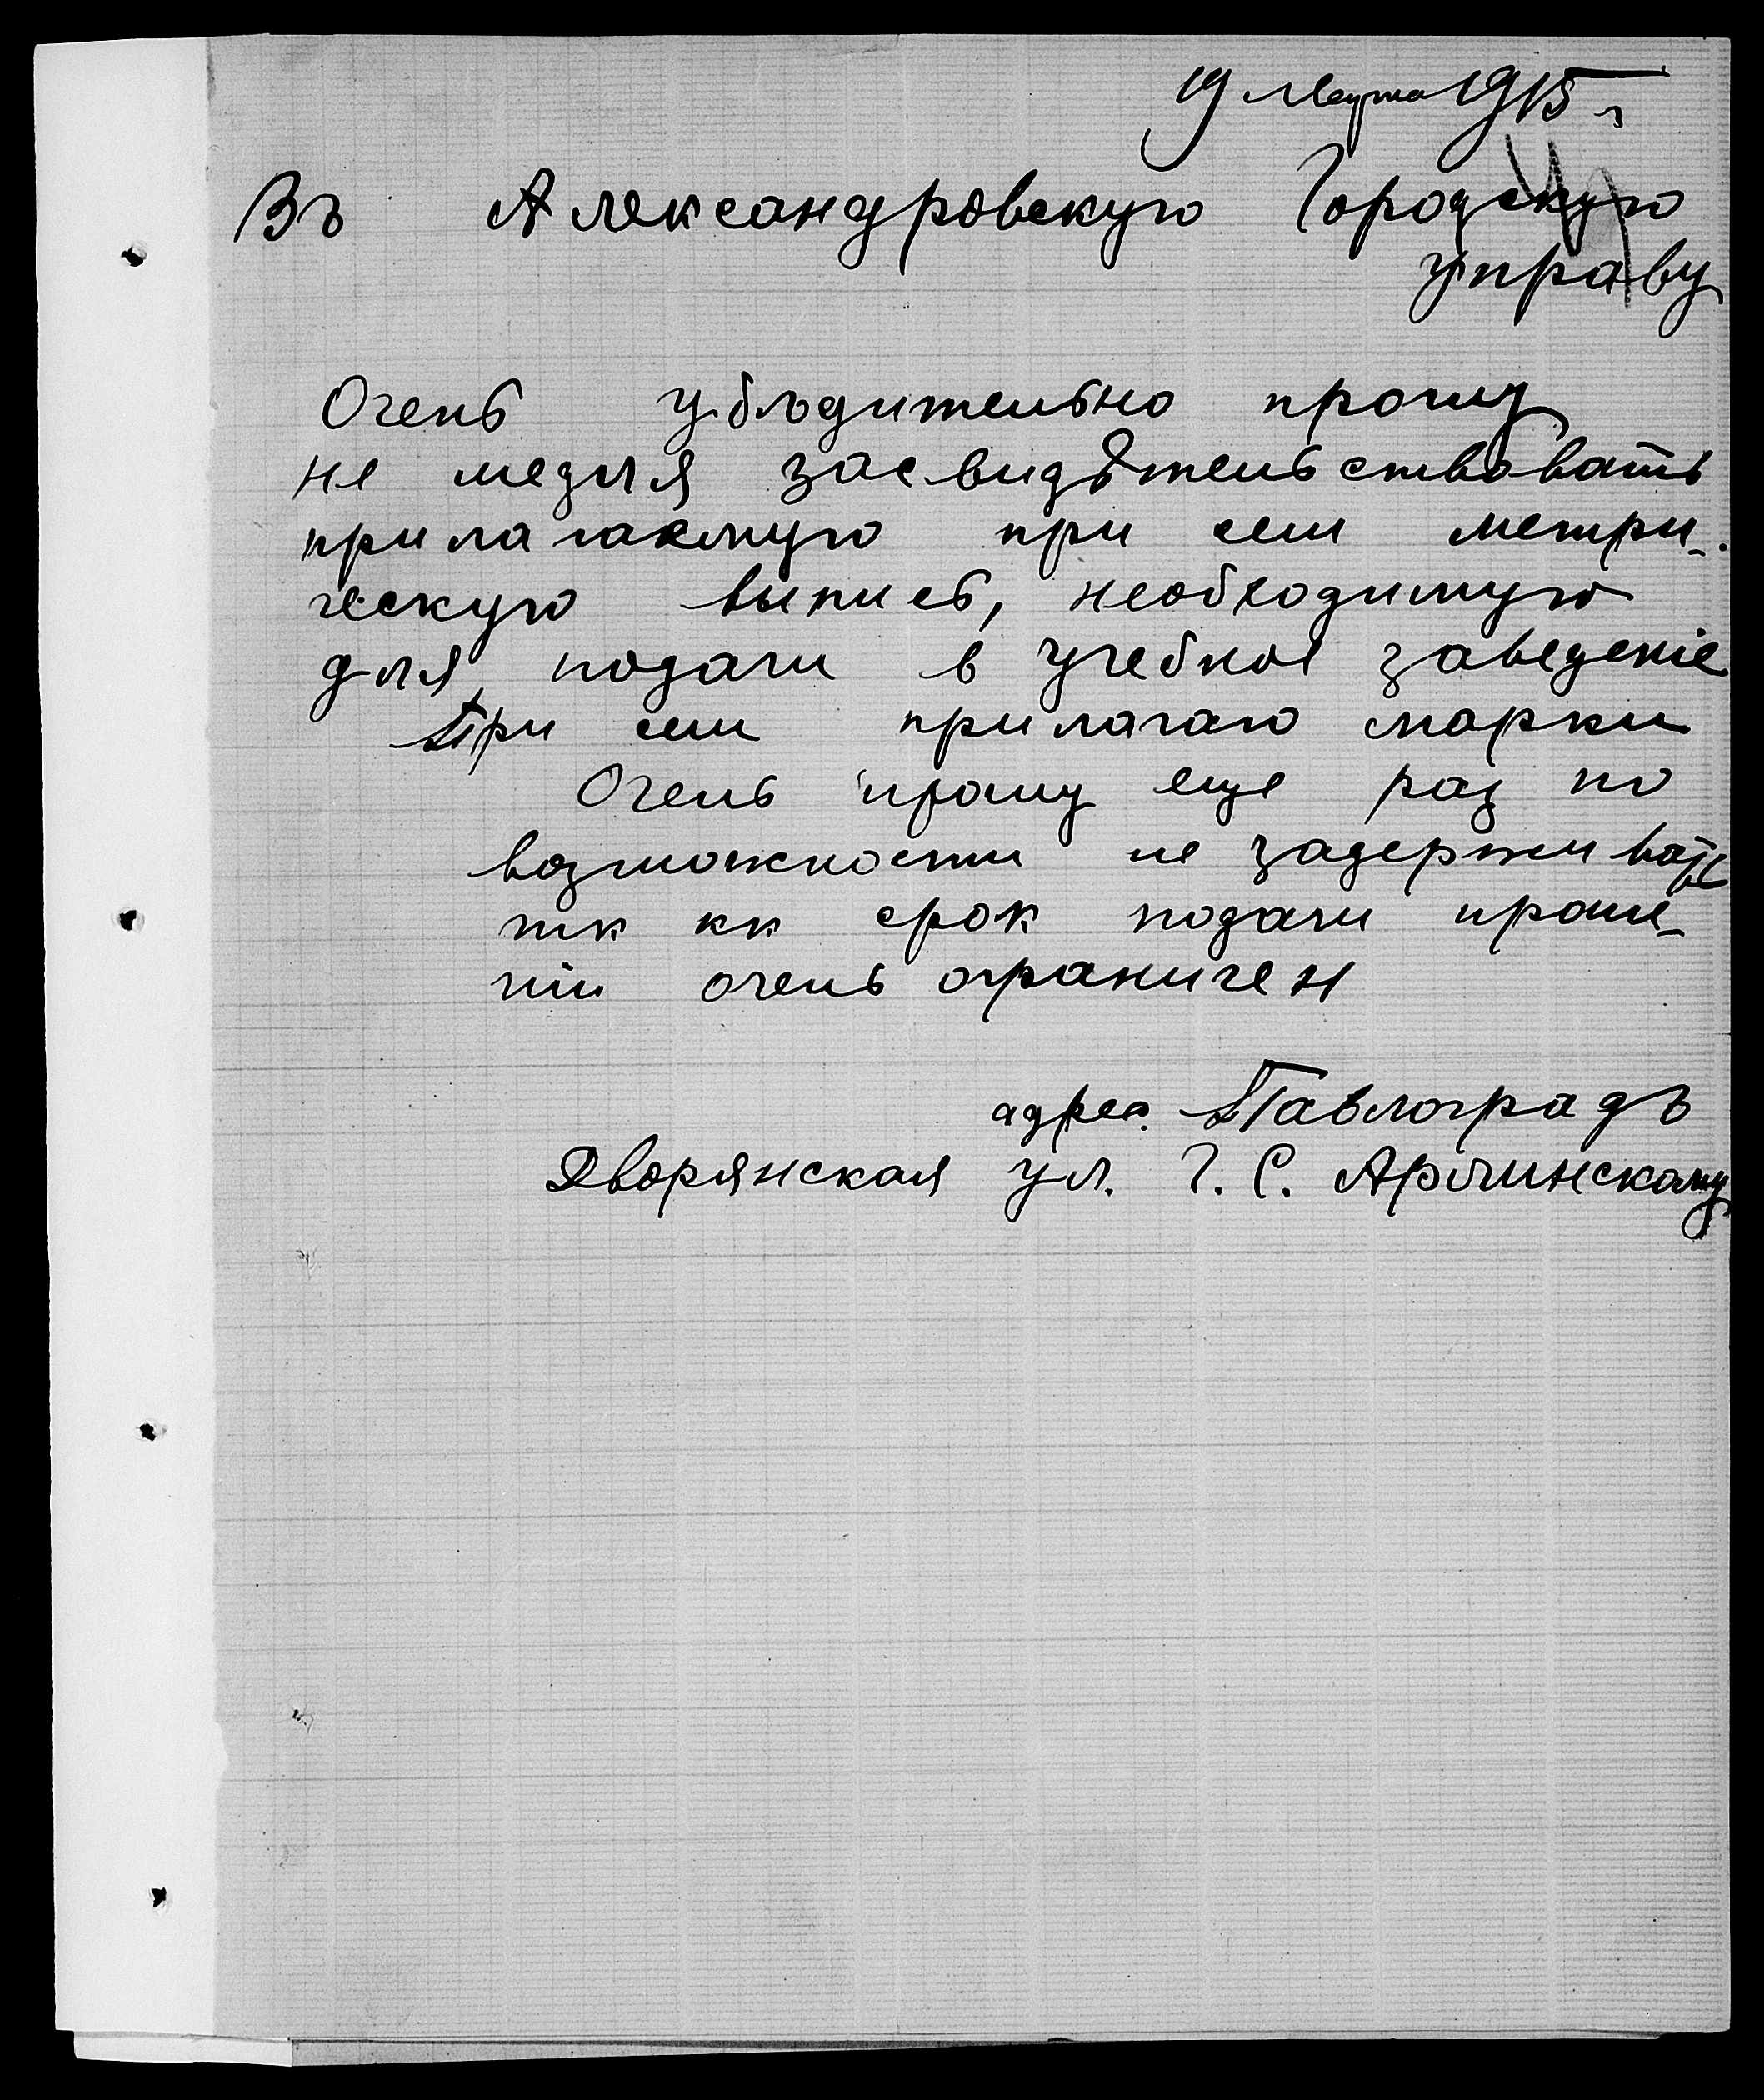 19 Марта 1915 г
Въ Александровскую Городскую
управу
Очень убѣдительно прошу
не медля засвидѣтельствовать
прилагаемую при сем метри-
ческую выпись, необходимую
для подачи в учебное заведеніе
При сем прилагаю марки
Очень прошу еще раз по
возможности не задерживать
тк кк срок подачи проше-
ній очень ограничен
адрес. Павлоградъ
Дворянская ул. Г. С.